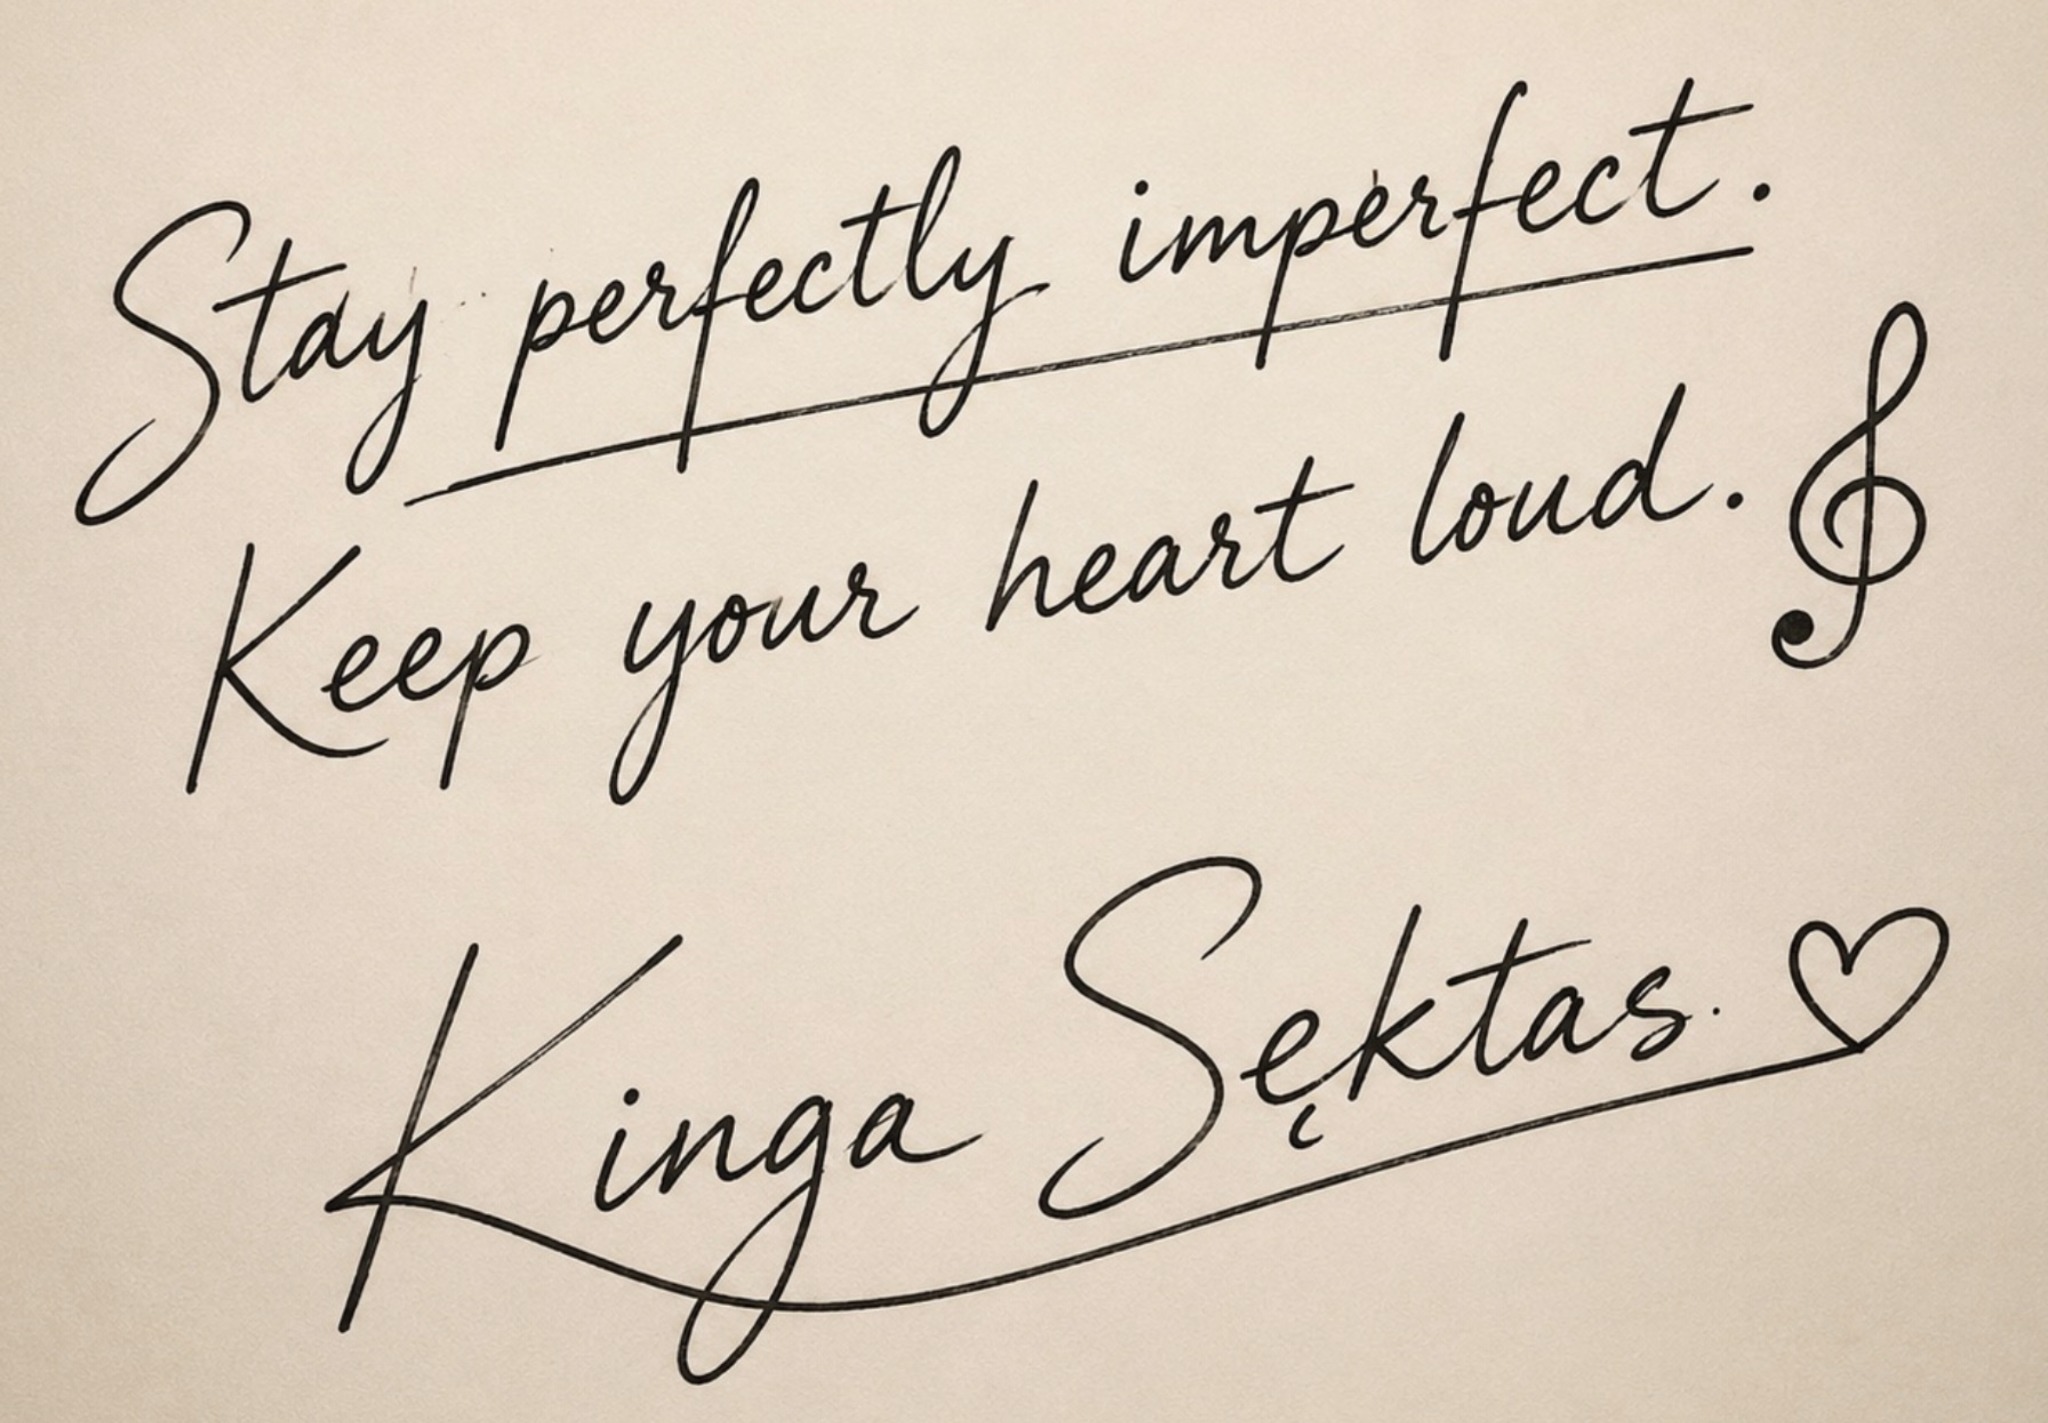 Stay perfectly imperfect.
Keep your heart loud.
Kinga Sęktas